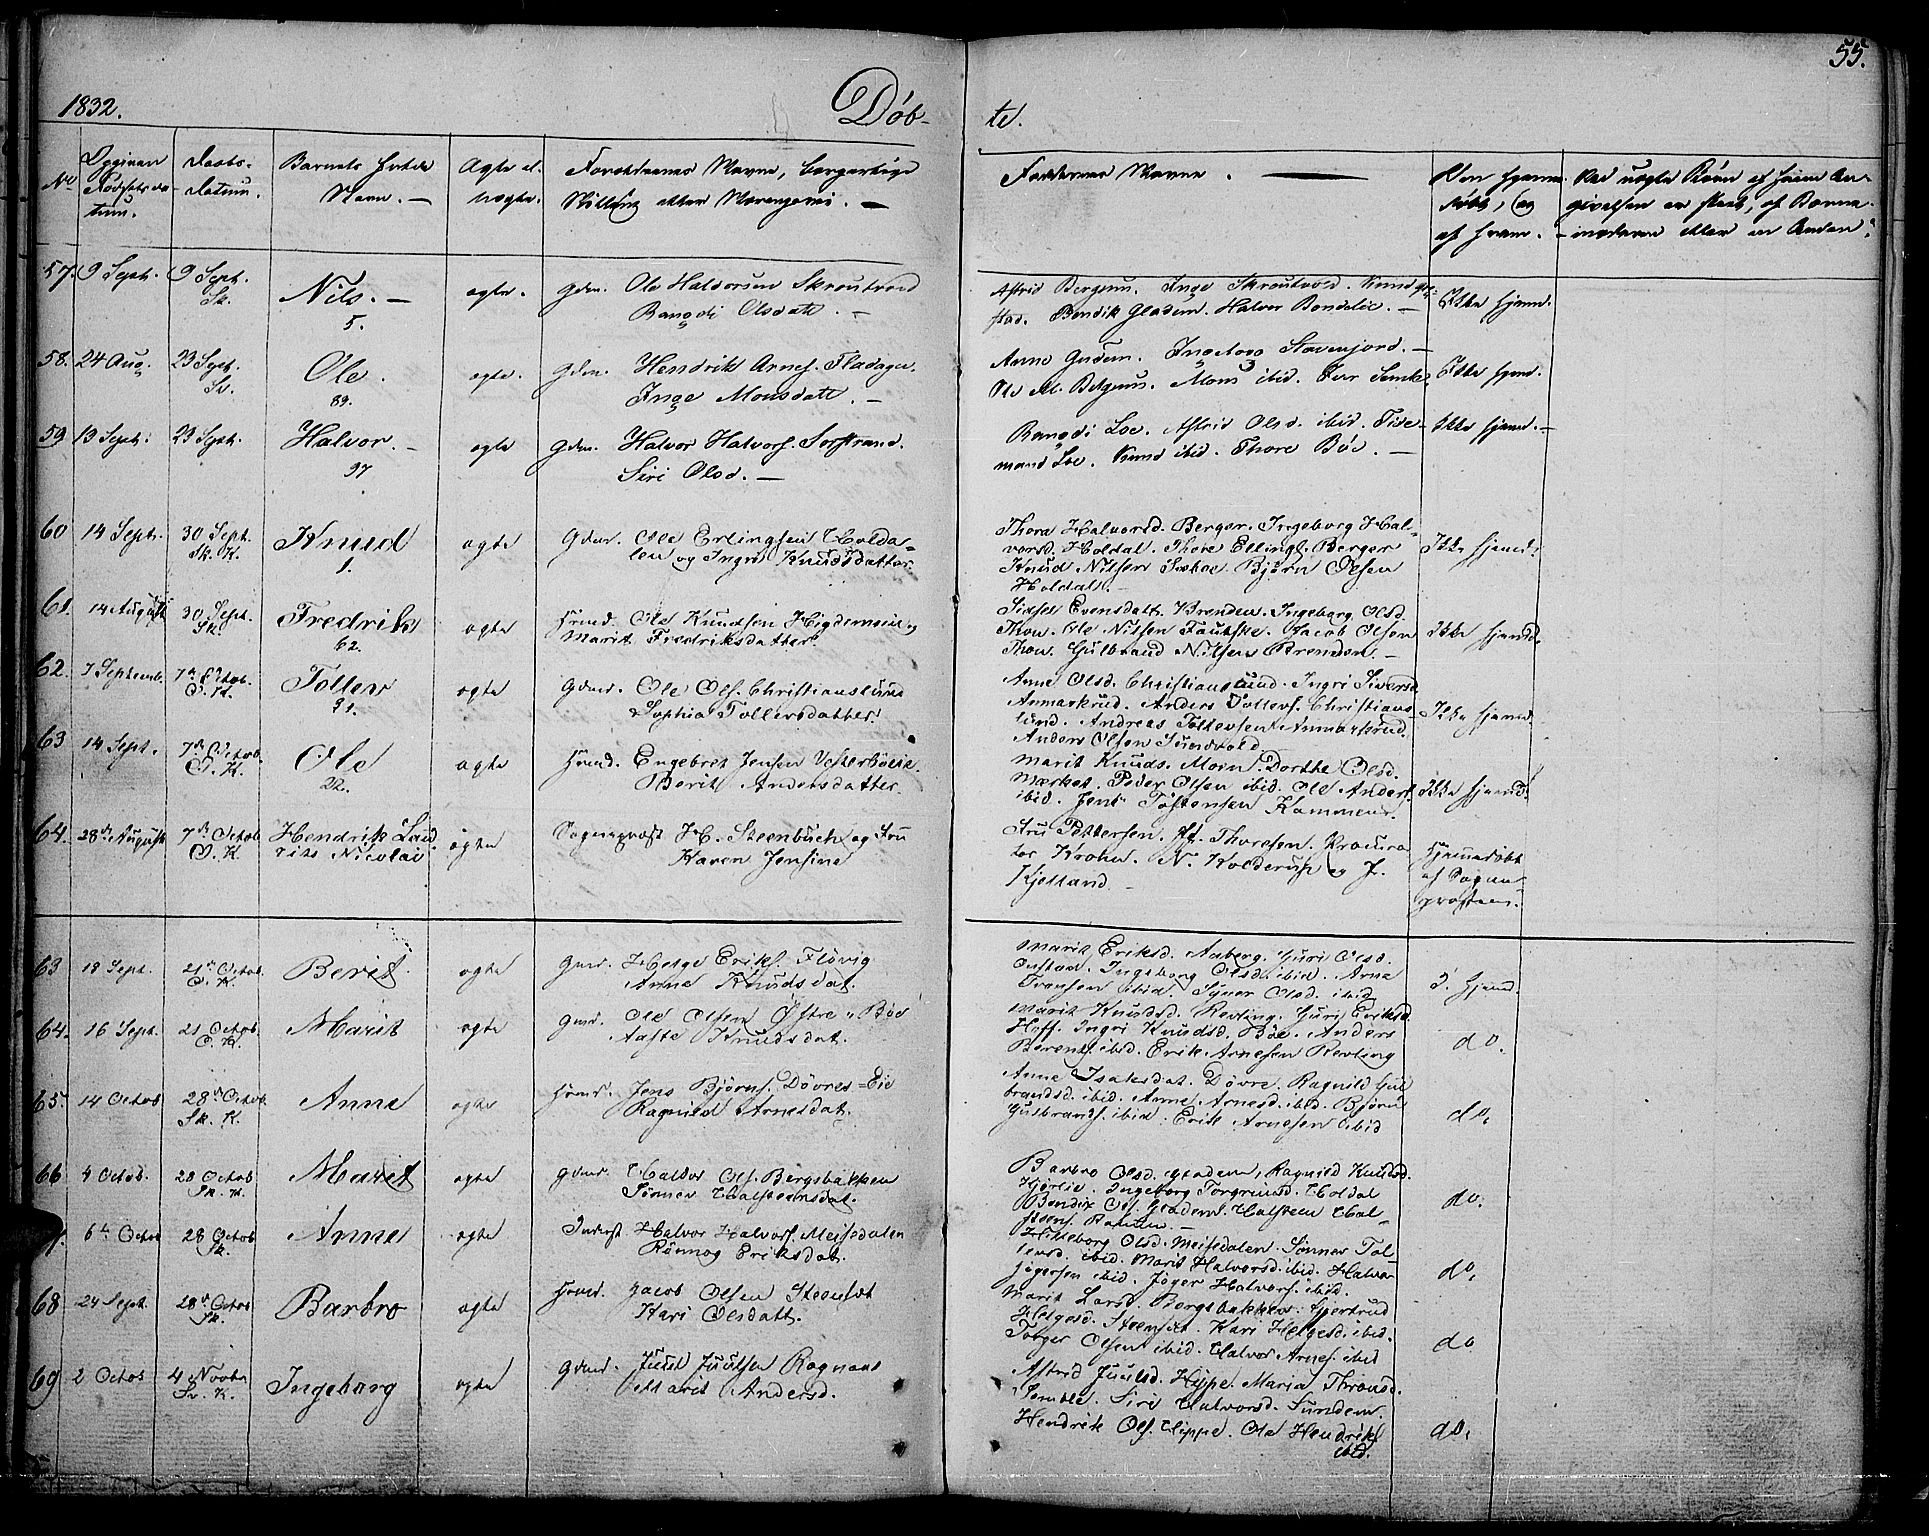 55.
1832. Døb- te.
No Opgiven Fødselsdatum. Daabs-Datum. Barnets fulde Navn. — Ægte el. Uægte. Forældrenes Navne, borgerlige Stilling eller Næringsvei. —
Faddernes Navne. — Om hjemmedøbt, og af hvem. Ved uægte Børn af hvem Angivelsen er skeet, af Barnemoderen eller en Anden.
57. 9 Sept. 9 Sept. Sk. Nils. — 5. ægte. Gdm. Ole Halvorsen Skroutvold
Rangdi Olsdatt. —
Astrid Bergum. Inge Skroutvold. Knud
stad. Bendik Gladem. Halvor Bondelie. — Ikke hjemd.
58. 24 Aug. 23 Sept. Sv. Ole. 89. ægte. Gdm. Hendrik Arnes. Fladagen.
Inge Monsdatt. —
Anne Gudem. Ingeborg Stavenjord. —
Ole M. Belgum. Mons ibid. Iver Semb. Ikke hjemd.
59 13 Sept. 23 Sept. Halvor. — 97 ægte Gdm. Halvor Halvors. Sorstrand.
Siri Olsd. —
Rangdi Loe. Astrid Olsd. ibid. Tide-
mand Loe. Knud ibid. Thore Bøe. — Ikke hjemd. —
60 14 Sept. 30 Sept. Sk. K. Knud 1. ægte Gdmd. Ole Erlingsen Holda-
len og Ingri Knudsdatter.
Thora Halvorsd. Berger. Ingeborg Hal-
vorsd. Holdal. Thore Ellings. Berger
Knud Nilsen Bjørn Olsen
Holdal. — Ikke hjemd.
61. 14 August 30 Sept. Sk. Fredrik 62. ægte Hmd. Ole Knudsen Higdemoen og
Marit Fredriksdatter.
Sidsel Evensdatt. Brenden. Ingeborg Olsd.
Thou. Ole Nilsen Fautske. Jacob Olsen
Thou. Gulbrand Nilsen Brenden. — Ikke hjemd.
62. 7 Septemb. 7de Octob. O. K. Tollev 91. ægte Gdmd. Ole Ols. Christianslund
& Sophia Tollevsdatter.
Anne Olsd. Christianslund. Ingri Siversd.
Anmarkrud. Anders Tollevs. Christians-
lund. Andreas Tollevsen Anmarkrud.
Anders Olsen Sundvold Ikke hjemd.
63 14 Sept. 7de Octob. O. K. Ole 22. ægte Hmd. Engebret Jensen Vesterbøeie.
Berit Andersdatter.
Marit Knuds. Moin. Dorthe Olsd.
Market. Peder Olsen ibid. Ole Anders.
ibid. Jens Tostensen Kammen. Ikke hjemd.
64. 28de August 7de Octob. O. K. Hendrik Laud-
rits Nicolai ægte Sogneprest H. Steenbuch og Fru
Karen Jensine
Fru Pettersen. Thoresen. Procura-
tor Krohn. N. Kolderup og J.
Kjelland. — Hjemmedøbt af Sogne-presten.
63 18 Sept. 21de Octob. O. K. Berit ægte Gmd. Helge Eriks. Fløvig
Anne Knudsdat.
Marit Eriksd. Aaberg. Guri Olsd.
Onstan. Ingeborg Olsd. ibid. Arne
Tronsen ibid. Syver Olsd. ibid I. hjemd.
64. 16 Sept. 21 Octob. O. K. Marit ægte Gmd. Ole Olsen Østre Bøe
Aaste Knudsdat.
Marit Knudsd. Revling. Guri Eriksd.
Hoff. Ingri Knudsd. Bøe. Anders
Berents. ibid. Erik Arnesen Revling do.
65. 14 Octob 28de Octob Sk. K. Anne ægte Hmd. Jens Bjørns. Døvres-Eie
Ragnild Arnesdat.
Anne Isaksdat. Døvre. Ragnild Gul-
brandsd. ibid. Anne Arnesd. ibid. Bjørn
Gulbrands. ibid. Erik Arnesen ibid do.
66 4 Octob. 28 Octob Sk. K. Marit ægte Gdmd. Haldor Ols. Bergsbakken
Sønnev Halsteensdat.
Barbro Olsd. Gladem, Ragnild Knudsd.
Hjørlie. Ingeborg Torgrimsd. Holdal
Bendix Ols. Gladem. Halsteen Hal-
steens. — do.
6te Octob 28 Octob Sk. Anne ægte Inderst Halvor Halvors. Meisdalen
Rønnog Eriksdat.
Hilleborg Olsd. Meisdalen. Sønnev Tol-
levsd. ibid. Marit Halvorsd. ibid. Halvor
Jøgersen ibid. Jøger Halvors. ibid. do.
68 24 Sept. 28de Octob Sk. Barbro ægte Hmd. Jacob Olsen Steenset
Kari Olsdatt.
Marit Larsd. Bergsbakken. Gjertrud
Helgesd. Steenset. Kari Helgesd. ibid.
Torger Olsen ibid. Halvor Arnes. ibid do
69 2 Octob 4 Novbr Sv. K. Ingeborg ægte Gdmd. Juul Juulsen Rognaas
Marit Andersd.
Astrid Juulsd. Hippe. Maria Thronsd.
Semble. Siri Halvorsd. Sundem.
Hendrik Ols. Hippe. Ole Hendriks
ibid. do.